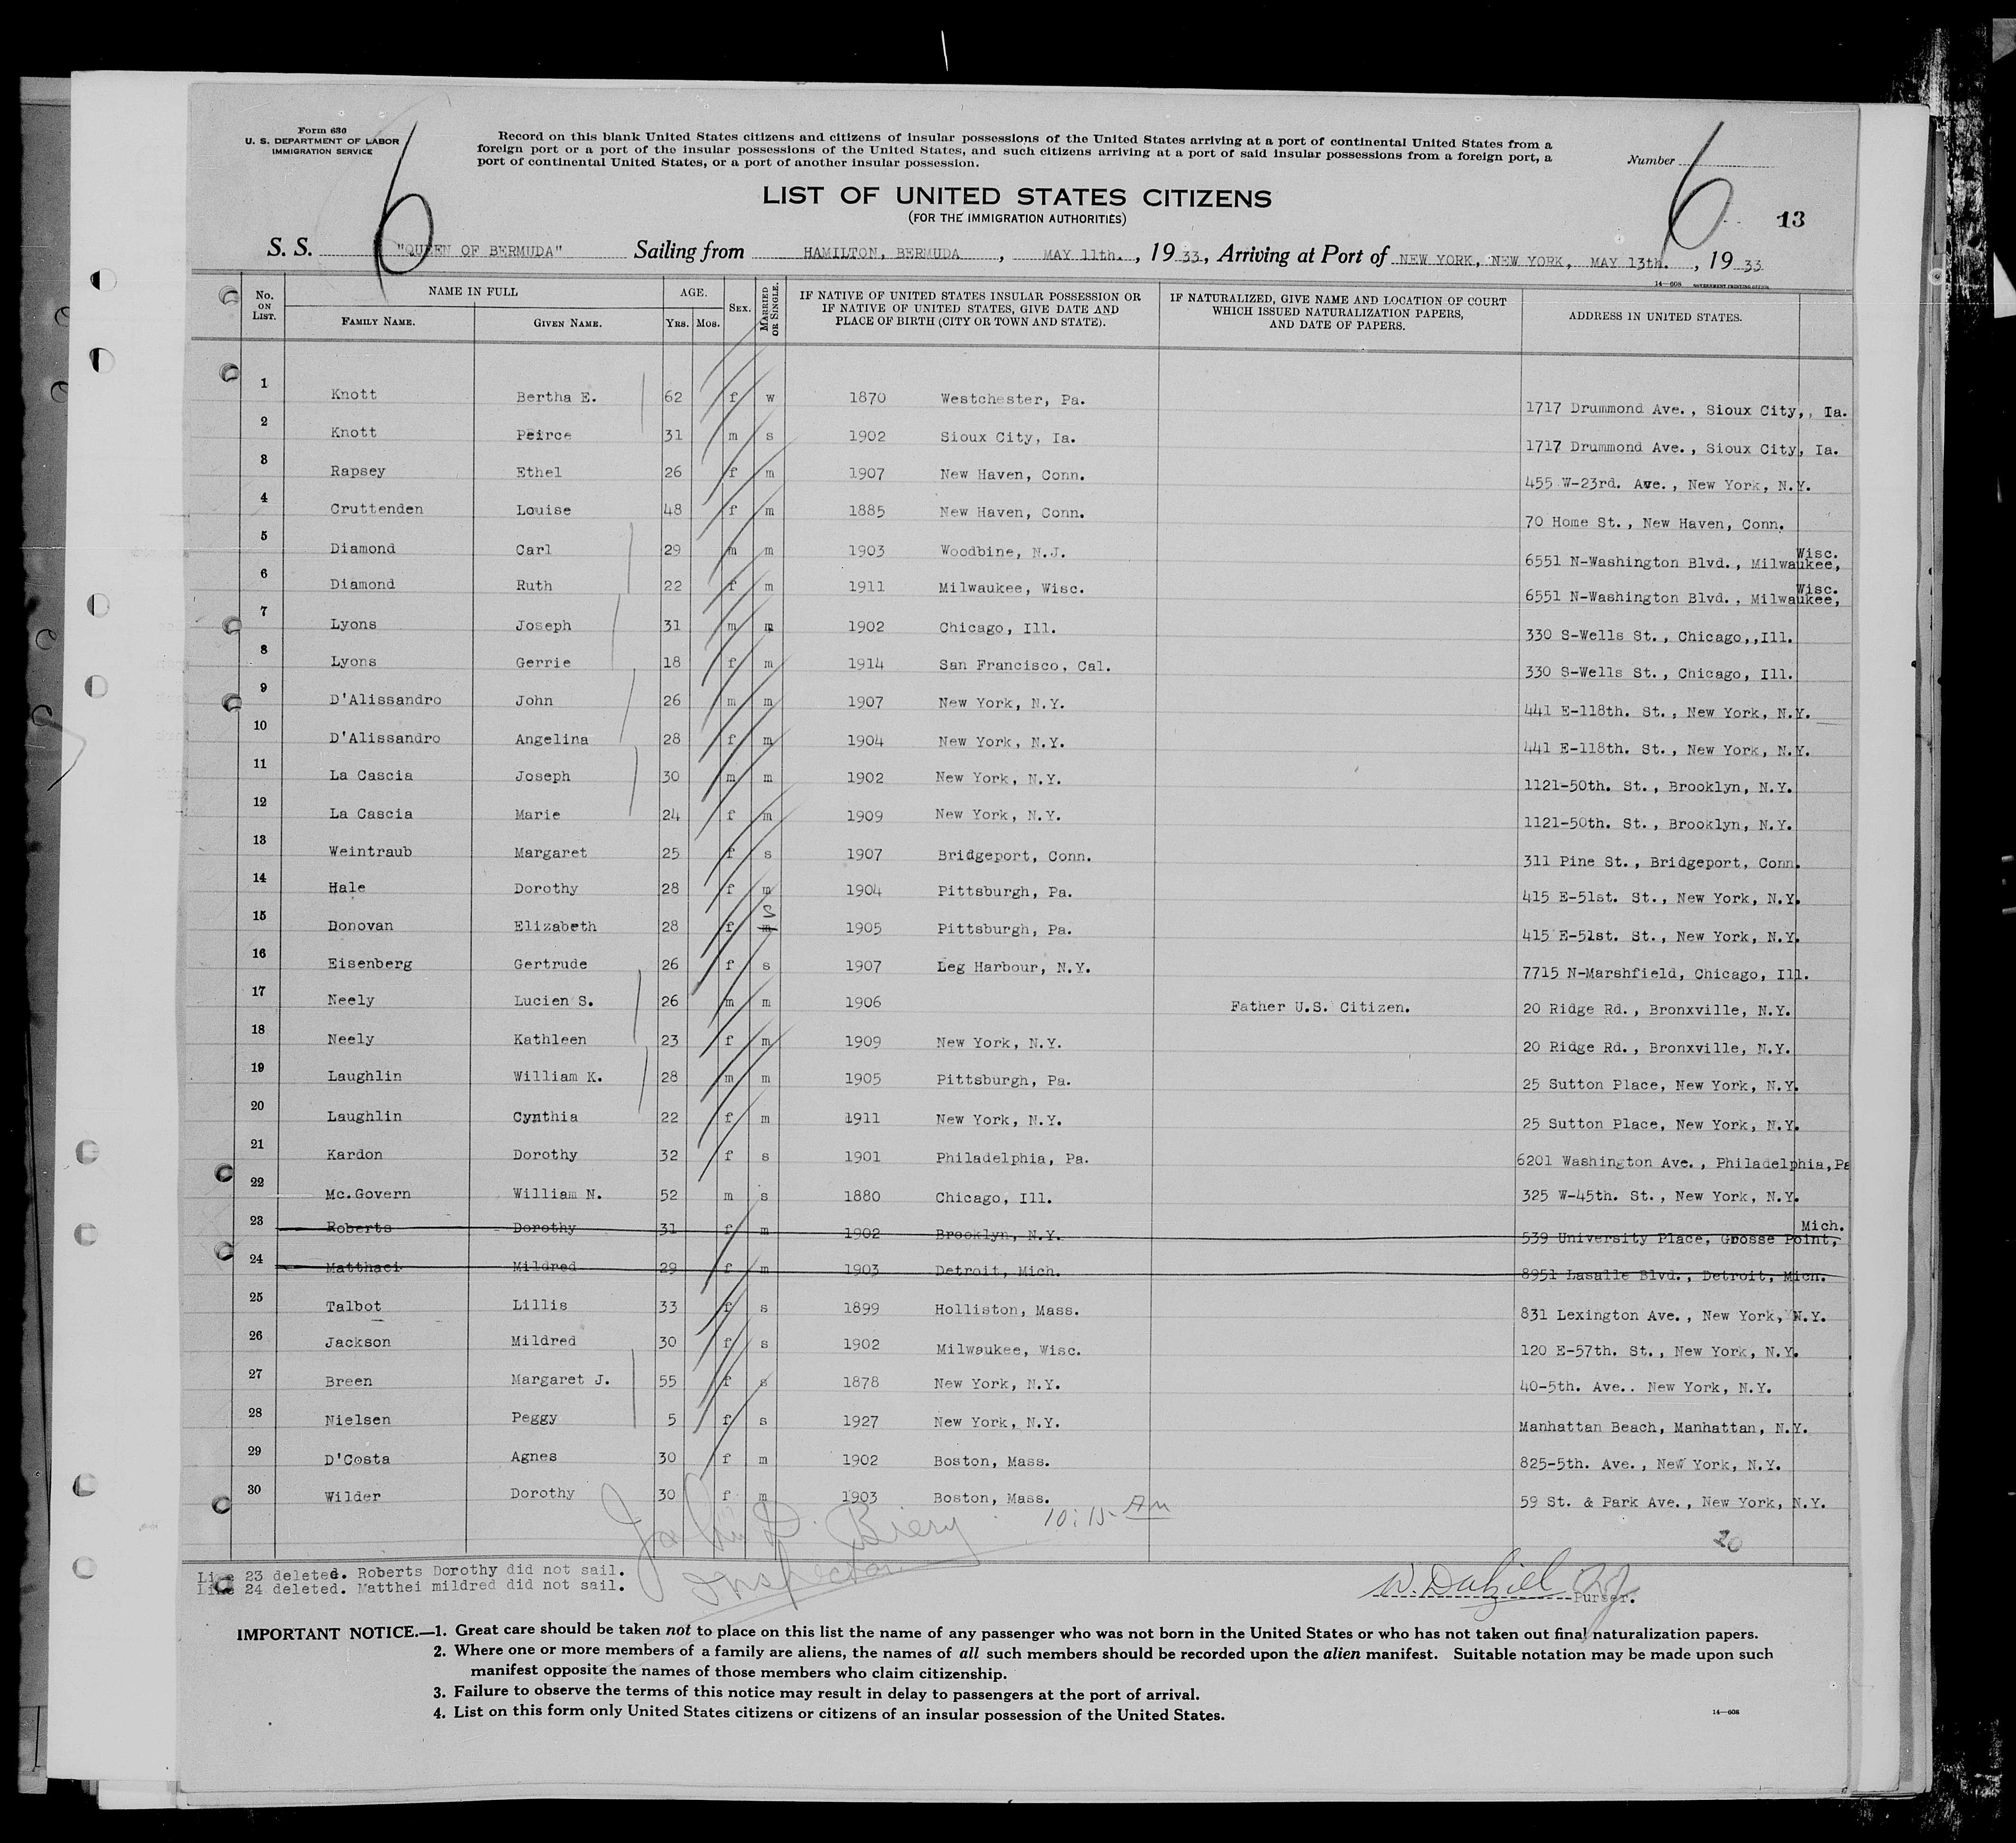 Form 630
U. S. DEPARTMENT OF LABOR
IMMIGRATION SERVICE
6
Record on this blank United States citizens and citizens of insular possessions of the United States arriving at a port of continental United States from a
foreign port or a port of the insular possessions of the United States, and such citizens arriving at a port of said insular possessions from a foreign port, a
port of continental United States, or a port of another insular possession.
Number
6
13
LIST OF UNITED STATES CITIZENS
(FOR THE IMMIGRATION AUTHORITIES)
S. S. "QUEEN OF BERMUDA" Sailing from HAMILTON, BERMUDA , MAY 11th. , 19 33, Arriving at Port of NEW YORK, NEW YORK, MAY 13th. , 19 33
14—608 GOVERNMENT PRINTING OFFICE
No. ON LIST. NAME IN FULL FAMILY NAME. GIVEN NAME. AGE. YRS. MOS. SEX. MARRIED OR SINGLE. IF NATIVE OF UNITED STATES INSULAR POSSESSION OR IF NATIVE OF UNITED STATES, GIVE DATE AND PLACE OF BIRTH (CITY OR TOWN AND STATE). IF NATURALIZED, GIVE NAME AND LOCATION OF COURT WHICH ISSUED NATURALIZATION PAPERS, AND DATE OF PAPERS. ADDRESS IN UNITED STATES.
1 Knott Bertha E. 62 f w 1870 Westchester, Pa. 1717 Drummond Ave., Sioux City,, Ia.
2 Knott Peirce 31 m s 1902 Sioux City, Ia. 1717 Drummond Ave., Sioux City, Ia.
3 Rapsey Ethel 26 f m 1907 New Haven, Conn. 455 W-23rd. Ave., New York, N.Y.
4 Cruttenden Louise 48 f m 1885 New Haven, Conn. 70 Home St., New Haven, Conn.
5 Diamond Carl 29 m m 1903 Woodbine, N.J. 6551 N-Washington Blvd., Milwaukee, Wisc.
6 Diamond Ruth 22 f m 1911 Milwaukee, Wisc. 6551 N-Washington Blvd., Milwaukee, Wisc.
7 Lyons Joseph 31 m m 1902 Chicago, Ill. 330 S-Wells St., Chicago,,Ill.
8 Lyons Gerrie 18 f m 1914 San Francisco, Cal. 330 S-Wells St., Chicago, Ill.
9 D'Alissandro John 26 m m 1907 New York, N.Y. 441 E-118th. St., New York, N.Y.
10 D'Alissandro Angelina 28 f m 1904 New York, N.Y. 441 E-118th. St., New York, N.Y.
11 La Cascia Joseph 30 m m 1902 New York, N.Y. 1121-50th. St., Brooklyn, N.Y.
12 La Cascia Marie 24 f m 1909 New York, N.Y. 1121-50th. St., Brooklyn, N.Y.
13 Weintraub Margaret 25 f s 1907 Bridgeport, Conn. 311 Pine St., Bridgeport, Conn.
14 Hale Dorothy 28 f m 1904 Pittsburgh, Pa. 415 E-51st. St., New York, N.Y.
15 Donovan Elizabeth 28 f m S 1905 Pittsburgh, Pa. 415 E-51st. St., New York, N.Y.
16 Eisenberg Gertrude 26 f s 1907 Leg Harbour, N.Y. 7715 N-Marshfield, Chicago, Ill.
17 Neely Lucien S. 26 m m 1906 Father U.S. Citizen. 20 Ridge Rd., Bronxville, N.Y.
18 Neely Kathleen 23 f m 1909 New York, N.Y. 20 Ridge Rd., Bronxville, N.Y.
19 Laughlin William K. 28 m m 1905 Pittsburgh, Pa. 25 Sutton Place, New York, N.Y.
20 Laughlin Cynthia 22 f m 1911 New York, N.Y. 25 Sutton Place, New York, N.Y.
21 Kardon Dorothy 32 f s 1901 Philadelphia, Pa. 6201 Washington Ave., Philadelphia,Pa
22 Mc.Govern William N. 52 m s 1880 Chicago, Ill. 325 W-45th. St., New York, N.Y.
23 Roberts Dorothy 31 f m 1902 Brooklyn, N.Y. 539 University Place, Grosse Point, Mich.
24 Matthaei Mildred 29 f m 1903 Detroit, Mich. 8951 Lasalle Blvd., Detroit, Mich.
25 Talbot Lillis 33 f s 1899 Holliston, Mass. 831 Lexington Ave., New York, N.Y.
26 Jackson Mildred 30 f s 1902 Milwaukee, Wisc. 120 E-57th. St., New York, N.Y.
27 Breen Margaret J. 55 f s 1878 New York, N.Y. 40-5th. Ave.. New York, N.Y.
28 Nielsen Peggy 5 f s 1927 New York, N.Y. Manhattan Beach, Manhattan, N.Y.
29 D'Costa Agnes 30 f m 1902 Boston, Mass. 825-5th. Ave., New York, N.Y.
30 Wilder Dorothy 30 f m 1903 Boston, Mass. 59 St. & Park Ave., New York, N.Y.
John D. Biery 10:15 AM
Inspector
20
Line 23 deleted. Roberts Dorothy did not sail.
Line 24 deleted. Matthei mildred did not sail.
W. Dalziel
Purser.
IMPORTANT NOTICE.—1. Great care should be taken not to place on this list the name of any passenger who was not born in the United States or who has not taken out final naturalization papers.
2. Where one or more members of a family are aliens, the names of all such members should be recorded upon the alien manifest. Suitable notation may be made upon such
manifest opposite the names of those members who claim citizenship.
3. Failure to observe the terms of this notice may result in delay to passengers at the port of arrival.
4. List on this form only United States citizens or citizens of an insular possession of the United States.
14—608